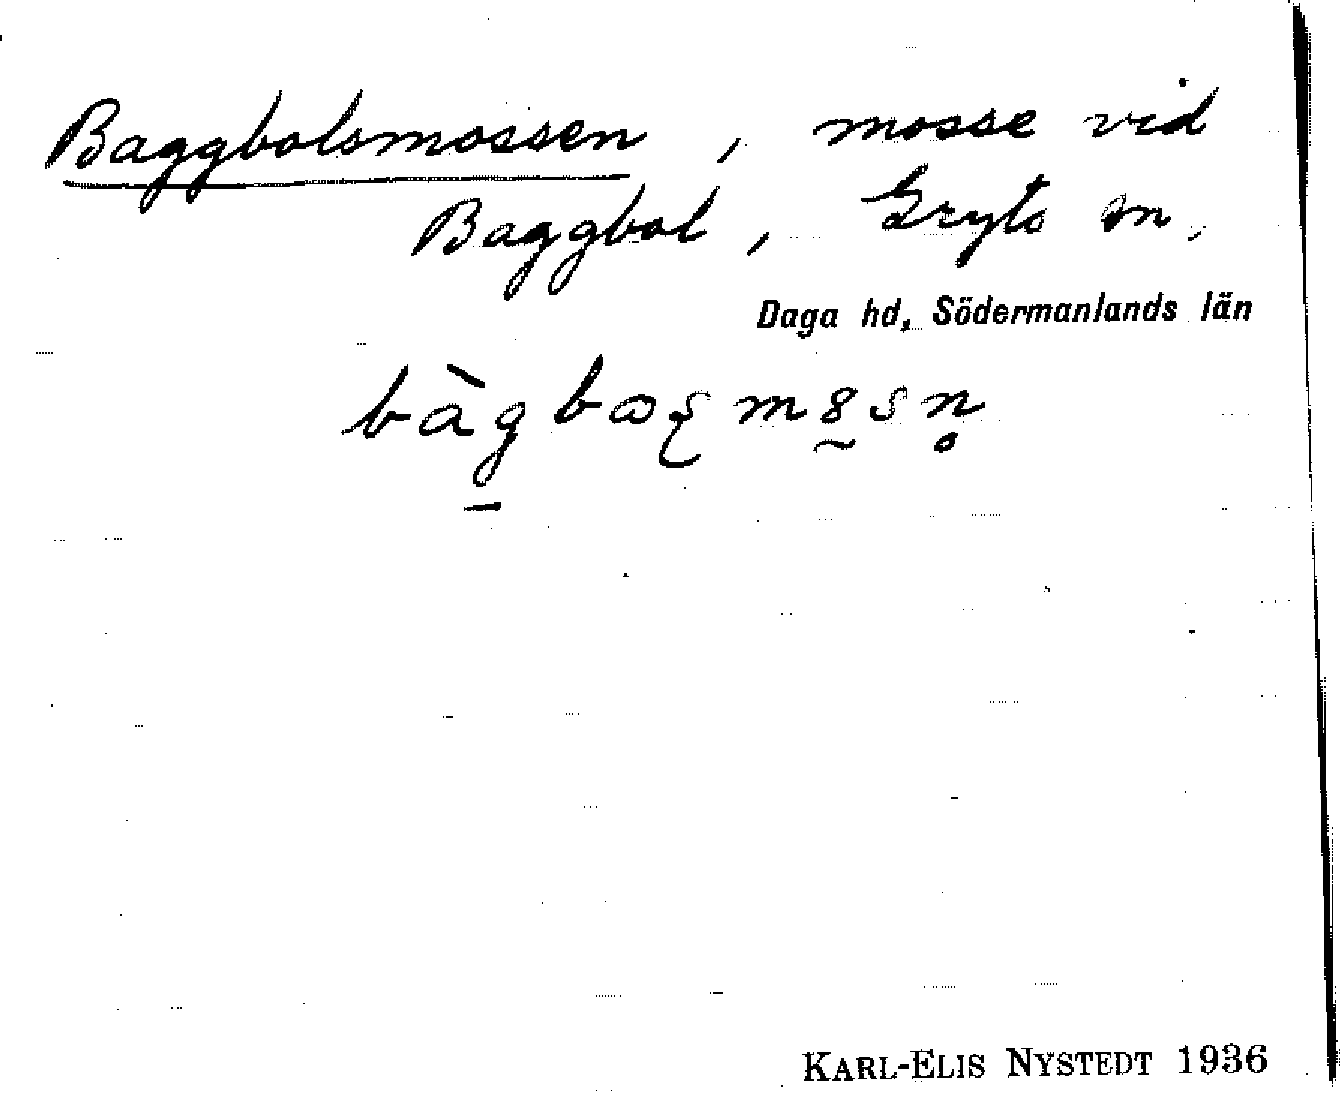 Baggbolsmossen, mosse vid
Baggbol, Gryts sn,
Daga hd, Södermanlands län
KARL-ELIS NYSTEDT 1936